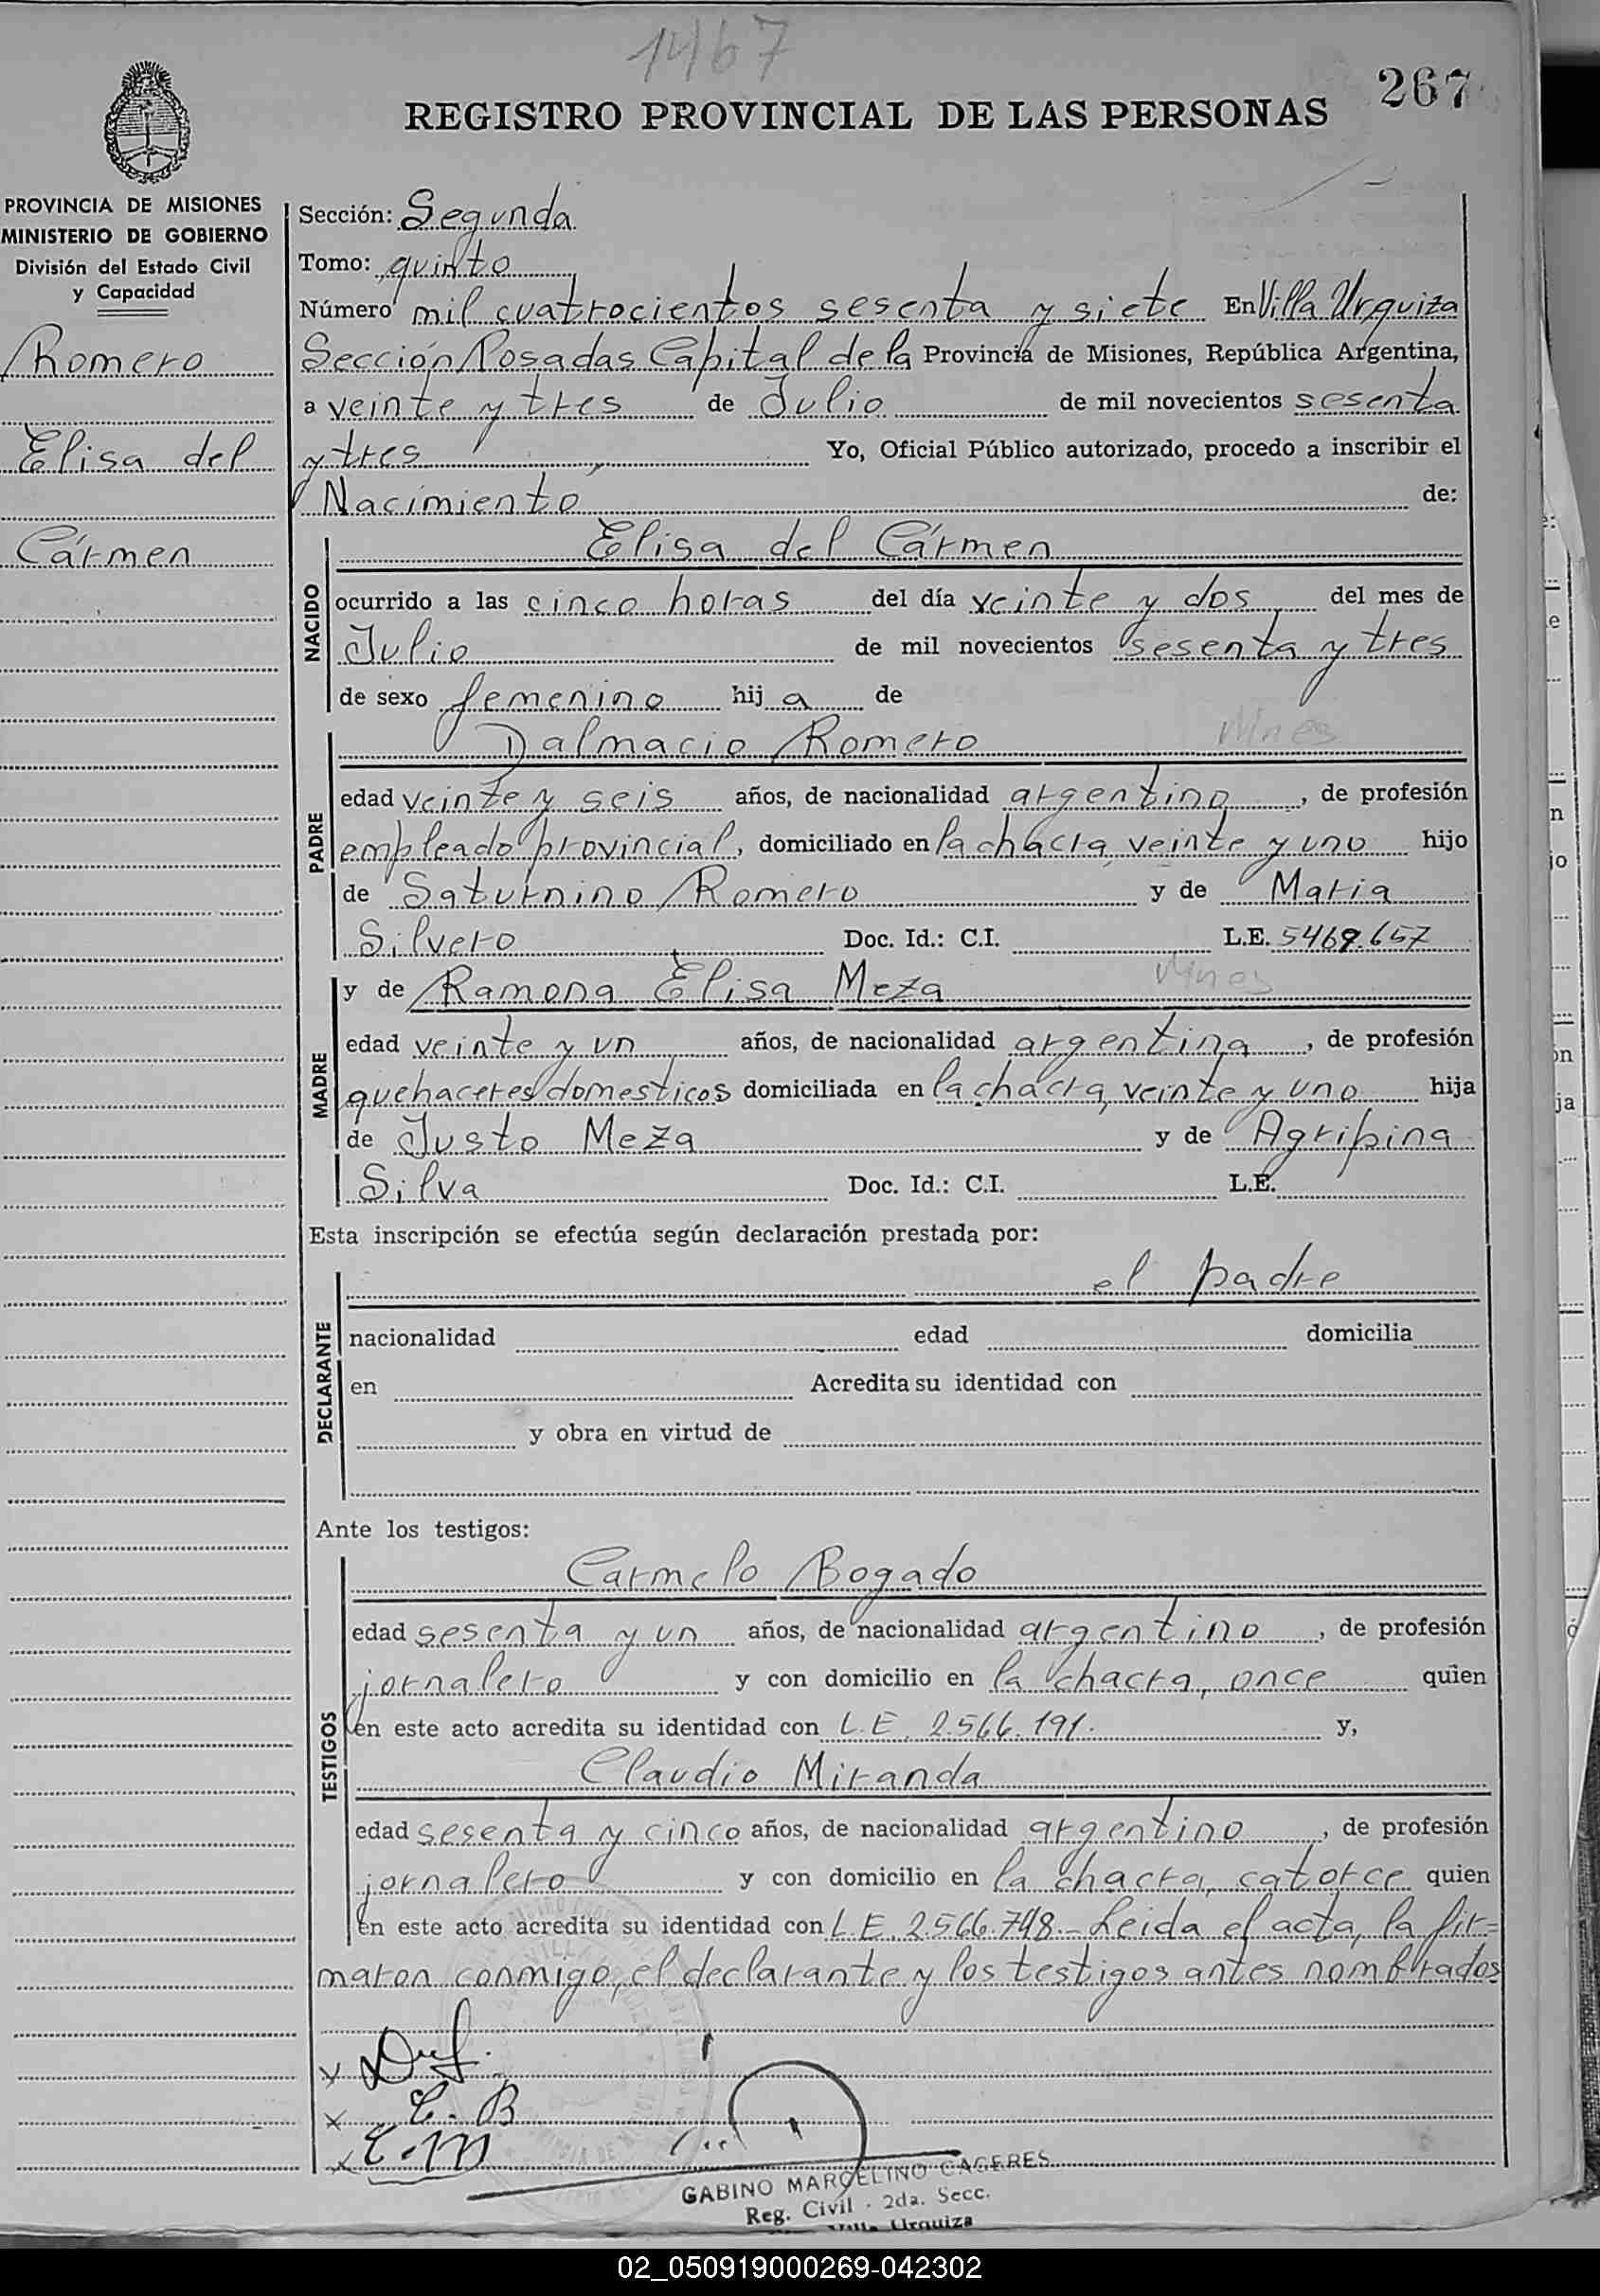 1467
267
REGISTRO PROVINCIAL DE LAS PERSONAS
PROVINCIA DE MISIONES
MINISTERIO DE GOBIERNO
División del Estado Civil
y Capacidad
Romero
Elisa del
Cármen
Sección: Segunda
Tomo: quinto
Número mil cuatrocientos sesenta y siete En Villa Urquiza
Sección Posadas Capital de la Provincia de Misiones, República Argentina,
a veinte y tres de Julio de mil novecientos sesenta
y tres Yo, Oficial Público autorizado, procedo a inscribir el
Nacimiento de:
NACIDO
Elisa del Cármen
ocurrido a las cinco horas del día veinte y dos del mes de
Julio de mil novecientos sesenta y tres
de sexo femenino hij a de
PADRE
Dalmacio Romero Mnes
edad veinte y seis años, de nacionalidad argentino, de profesión
empleado provincial, domiciliado en la chacra veinte y uno hijo
de Saturnino Romero y de Maria
Silvero Doc. Id.: C.I. L.E. 5469.657
MADRE
y de Ramona Elisa Meza Mnes
edad veinte y un años, de nacionalidad argentina, de profesión
quehaceres domesticos domiciliada en la chacra, veinte y uno hija
de Justo Meza y de Agripina
Silva Doc. Id.: C.I. L.E.
Esta inscripción se efectúa según declaración prestada por:
DECLARANTE
el padre
nacionalidad edad domicilia
en Acredita su identidad con
y obra en virtud de
Ante los testigos:
TESTIGOS
Carmelo Bogado
edad sesenta y un años, de nacionalidad argentino, de profesión
jornalero y con domicilio en la chacra, once quien
en este acto acredita su identidad con L.E. 2.566.191. y,
Claudio Miranda
edad sesenta y cinco años, de nacionalidad argentino, de profesión
jornalero y con domicilio en la chacra, catorce quien
en este acto acredita su identidad con L.E. 2.566.748.- Leida el acta, la fir=
maron conmigo, el declarante y los testigos antes nombrados
x
x C. B
x C. M
GABINO MARCELINO CACERES
Reg. Civil - 2da. Secc.
Villa Urquiza
02_050919000269-042302